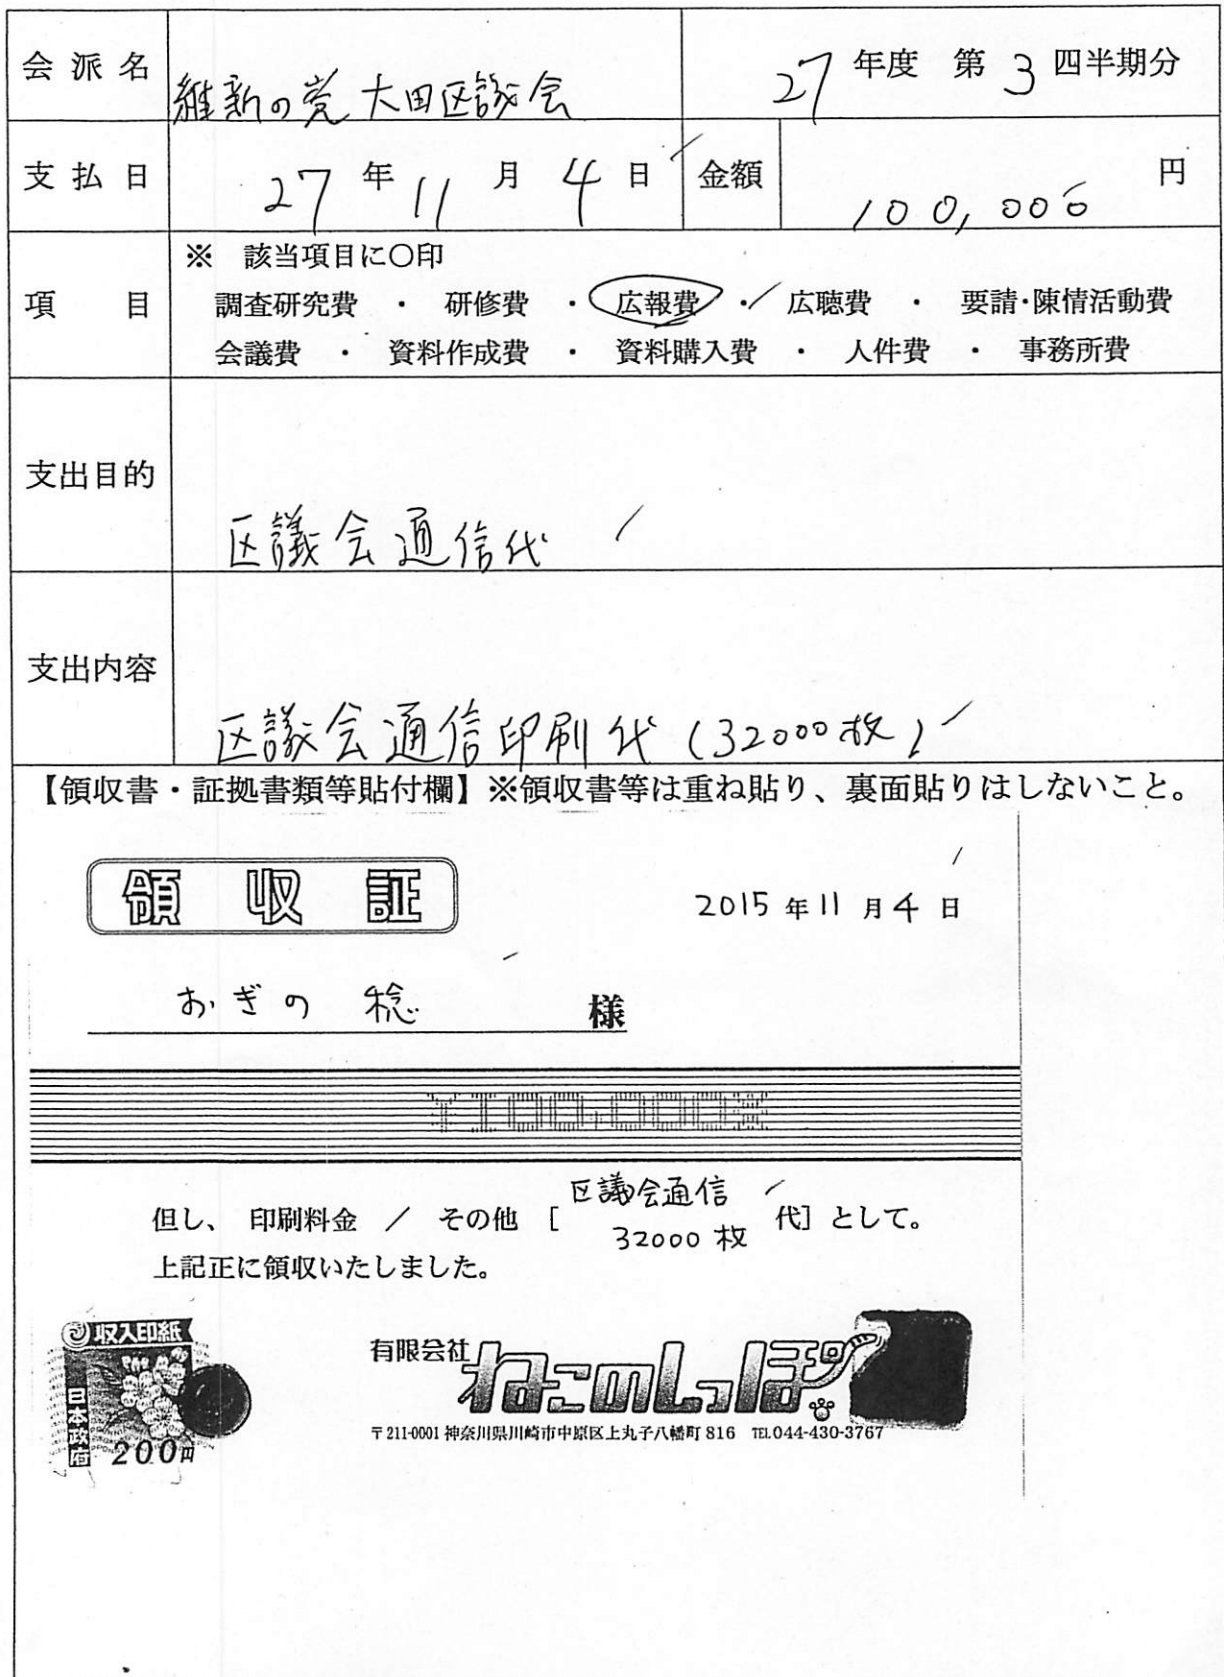 会派名 維新の党 大田区議会 27年度 第3四半期分
支払日 27年11月4日 金額 100,000円
※ 該当項目に〇印
項目 調査研究費 ・ 研修費 ・ 広報費 ・ 広聴費 ・ 要請・陳情活動費
会議費 ・ 資料作成費 ・ 資料購入費 ・ 人件費 ・ 事務所費
支出目的 区議会通信代
支出内容 区議会通信印刷代(32000枚)
【領収書・証拠書類等貼付欄】※領収書等は重ね貼り、裏面貼りはしないこと。
領収証
2015年11月4日
おぎの 稔 様
¥100,000※
区議会通信
但し、 印刷料金 / その他 [ 32000枚 代] として。
上記正に領収いたしました。
収入印紙
日本政府
200円
有限会社 ねこのしっぽ
〒211-0001 神奈川県川崎市中原区上丸子八幡町816 TEL044-430-3767